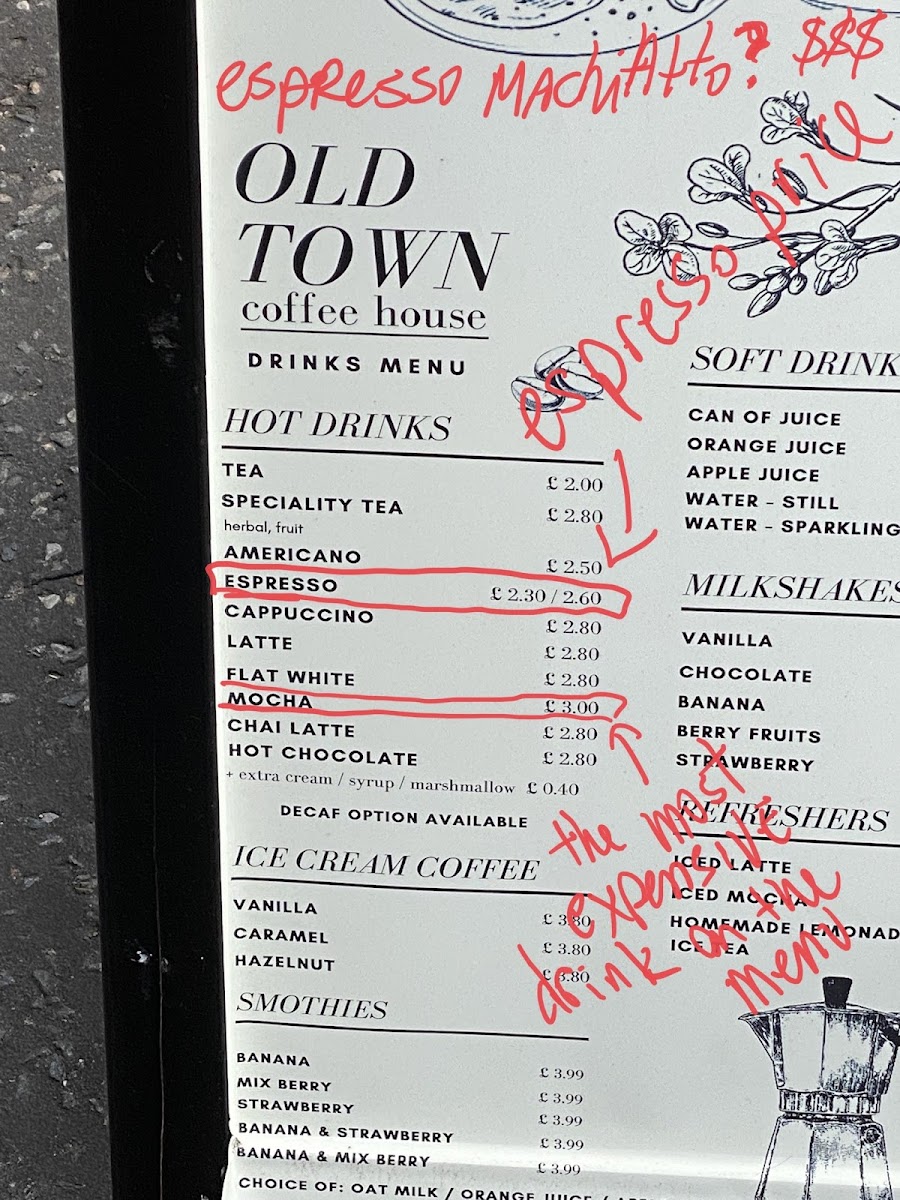 espresso MAchiAtto? $$$
OLD
TOWN
coffee house
DRINKS MENU
espresso price
HOT DRINKS
TEA £ 2.00
SPECIALITY TEA £ 2.80
herbal, fruit
AMERICANO £ 2.50
ESPRESSO £ 2.30 / 2.60
CAPPUCCINO £ 2.80
LATTE £ 2.80
FLAT WHITE £ 2.80
MOCHA £ 3.00
CHAI LATTE £ 2.80
HOT CHOCOLATE £ 2.80
+ extra cream / syrup / marshmallow £ 0.40
DECAF OPTION AVAILABLE
the most
expensive
drink on the
menu
ICE CREAM COFFEE
VANILLA £ 3.80
CARAMEL £ 3.80
HAZELNUT £ 3.80
SMOTHIES
BANANA £ 3.99
MIX BERRY £ 3.99
STRAWBERRY £ 3.99
BANANA & STRAWBERRY £ 3.99
BANANA & MIX BERRY £ 3.99
CHOICE OF: OAT MILK / ORANGE JUICE /
SOFT DRINK
CAN OF JUICE
ORANGE JUICE
APPLE JUICE
WATER - STILL
WATER - SPARKLING
MILKSHAKES
VANILLA
CHOCOLATE
BANANA
BERRY FRUITS
STRAWBERRY
REFRESHERS
ICED LATTE
ICED MOCHA
HOMEMADE LEMONAD
ICE TEA